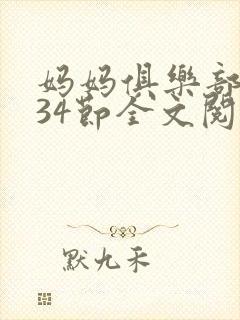 妈妈俱樂部
34節全文閱
默九禾